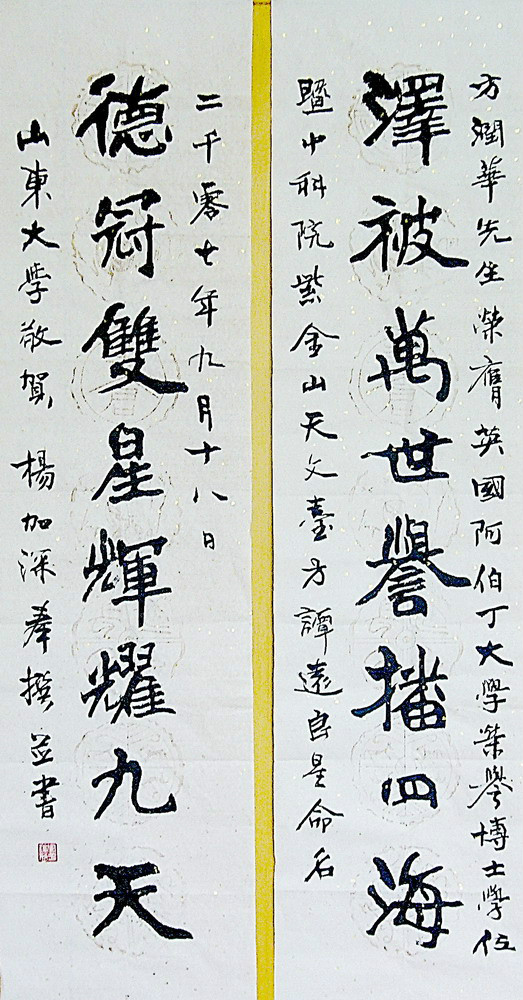 方潤華先生榮膺英國阿伯丁大學榮譽博士學位
澤被萬世譽播四海
暨中科院紫金山天文臺方譚遠良星命名
二千零七年九月十八日
德冠雙星輝耀九天
山東大學敬賀 楊加深奉撰並書